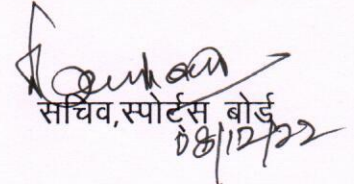 सचिव,स्पोर्ट्स बोर्ड
08/12/22